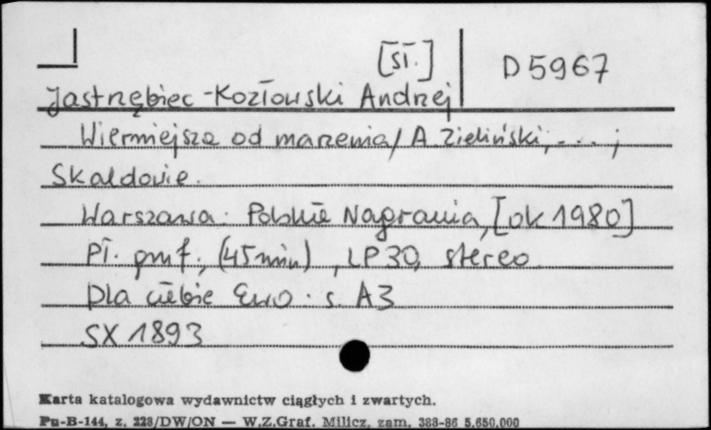 [sł.] D 5967
Jastrzębiec-Kozłowski Andrzej
Wierniejsza od marzenia / A. Zieliński, ... ;
Skaldowie.
Warszawa : Polskie Nagrania, [ok 1980]
Pł. gmf., (45 min), LP 30, stereo
Dla ciebie Ewo : s. A3
SX 1893
Karta katalogowa wydawnictw ciągłych i zwartych.
Pu-B-144, z. 228/DW/ON — W.Z.Graf. Milicz, zam. 383-86 5.650.000